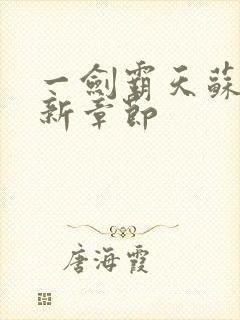 一劍霸天蘇
新章節
唐海霞